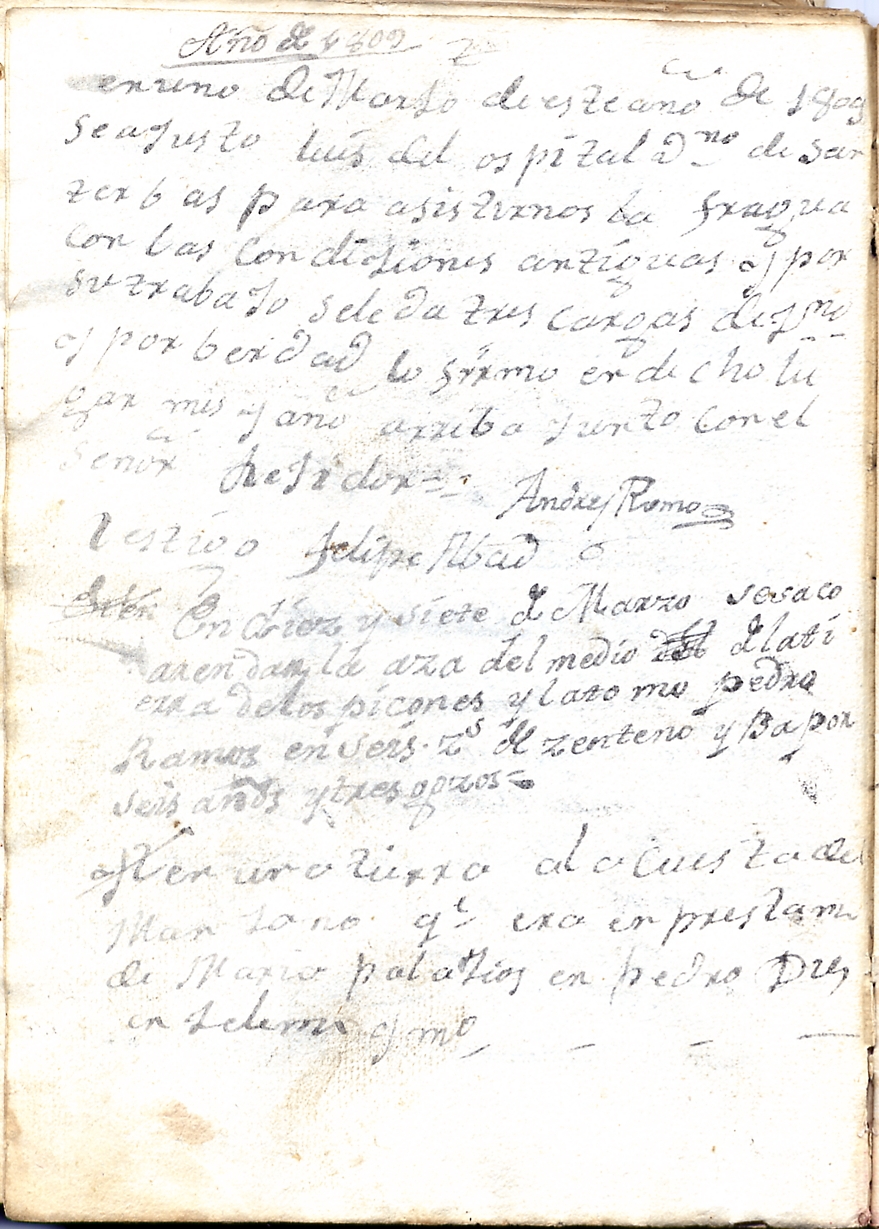 Año de 1809
en uno de Marso de este año de 1809
se ajusto luis del ospital vno de san
terbas para asistirnos la fragua
con las condisiones antiguas y por
su trabajo se le da tres cargas de
y por berdad lo firmo en dicho lu
gar mes y año arriba junto con el
señor Rejidor
Andres Romo
Testigo felipe Abad
En diez y siete de Marzo se saco
arendar la aza del medio de la ti
erra de los picones y la tomo pedro
Ramos en seis zs de zenteno y Ba por
seis años y tres gozos
Yten una tierra a la Cuesta de
Mansano qe era en prestam
de Maria palasios en pedro Dies
en selemi y mo